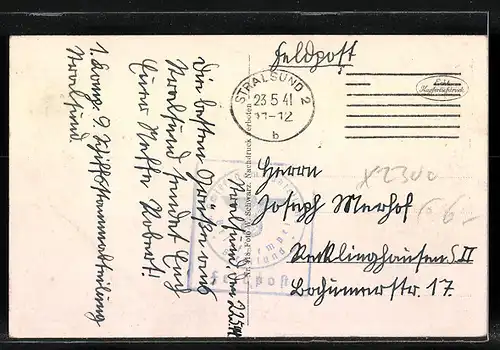 Feldpost
STRALSUND 2
23.5.41
11-12
b
Echter
Kupfertiefdruck
Stralsund, den 22.5.41
Die besten Grüße aus
Stralsund sendet Euch
Euer Neffe Robert!
1. Komp. 9. Schiffsstammabteilung
Stralsund
Foto W. Schwarz. Nachdruck verboten
Herrn
Joseph Merhof
Recklinghausen S II
Bochumerstr. 17.
Feldpost
6-